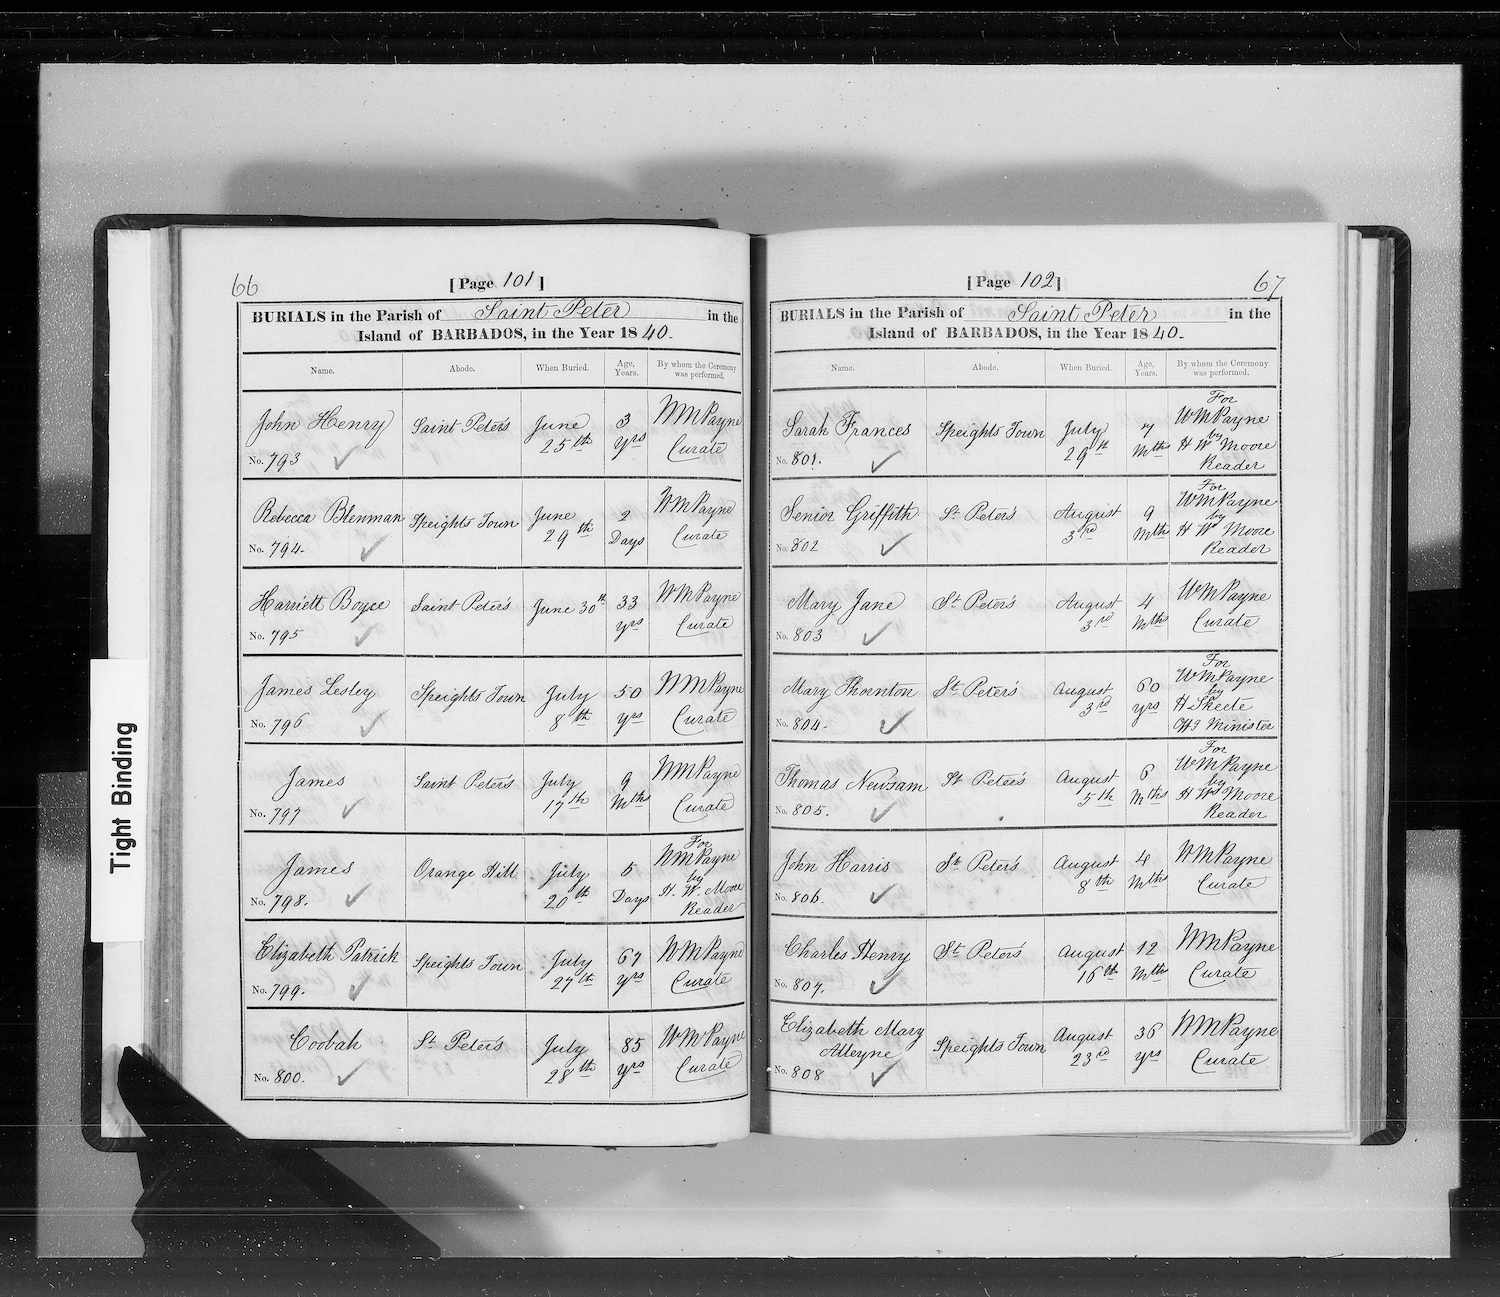 Tight Binding
66
[ Page 101 ]
BURIALS in the Parish of Saint Peter in the
Island of BARBADOS, in the Year 1840.
Name. Abode. When Buried. Age, Years. By whom the Ceremony was performed.
John Henry Saint Peter's June 25th 3 yrs WMPayne Curate
No. 793
Rebecca Blenman Speights Town June 29th 2 Days WMPayne Curate
No. 794.
Harriett Boyce Saint Peter's June 30th 33 yrs WMPayne Curate
No. 795
James Lesley Speights Town July 8th 50 yrs WMPayne Curate
No. 796
James Saint Peter's July 17th 9 Mths WMPayne Curate
No. 797
James Orange Hill July 20th 5 Days For WMPayne by H. W. Moore Reader
No. 798.
Elizabeth Patrick Speights Town July 27th 67 yrs WMPayne Curate
No. 799.
Coobah St Peter's July 28th 85 yrs WMPayne Curate
No. 800.
67
[ Page 102 ]
BURIALS in the Parish of Saint Peter in the
Island of BARBADOS, in the Year 1840.
Name. Abode. When Buried. Age, Years. By whom the Ceremony was performed.
Sarah Frances Speights Town July 29th 7 Mths For WMPayne by H W Moore Reader
No. 801.
Senior Griffith St Peter's August 3rd 9 Mths For WMPayne by H W Moore Reader
No. 802
Mary Jane St Peter's August 3rd 4 Mths WMPayne Curate
No. 803
Mary Thornton St Peter's August 3rd 60 yrs For WMPayne by H Skeete Minister
No. 804.
Thomas Newsam St Peter's August 5th 6 Mths For WMPayne by H W Moore Reader
No. 805.
John Harris St Peter's August 8th 4 Mths WMPayne Curate
No. 806.
Charles Henry St Peter's August 16th 12 Mths WMPayne Curate
No. 807.
Elizabeth Mary Alleyne Speights Town August 23rd 36 yrs WMPayne Curate
No. 808